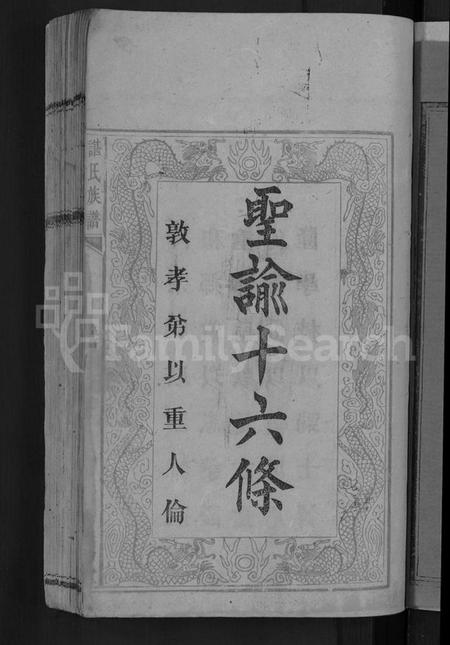 聖諭十六條
敦孝弟以重人倫
氏族譜
FamilySearch